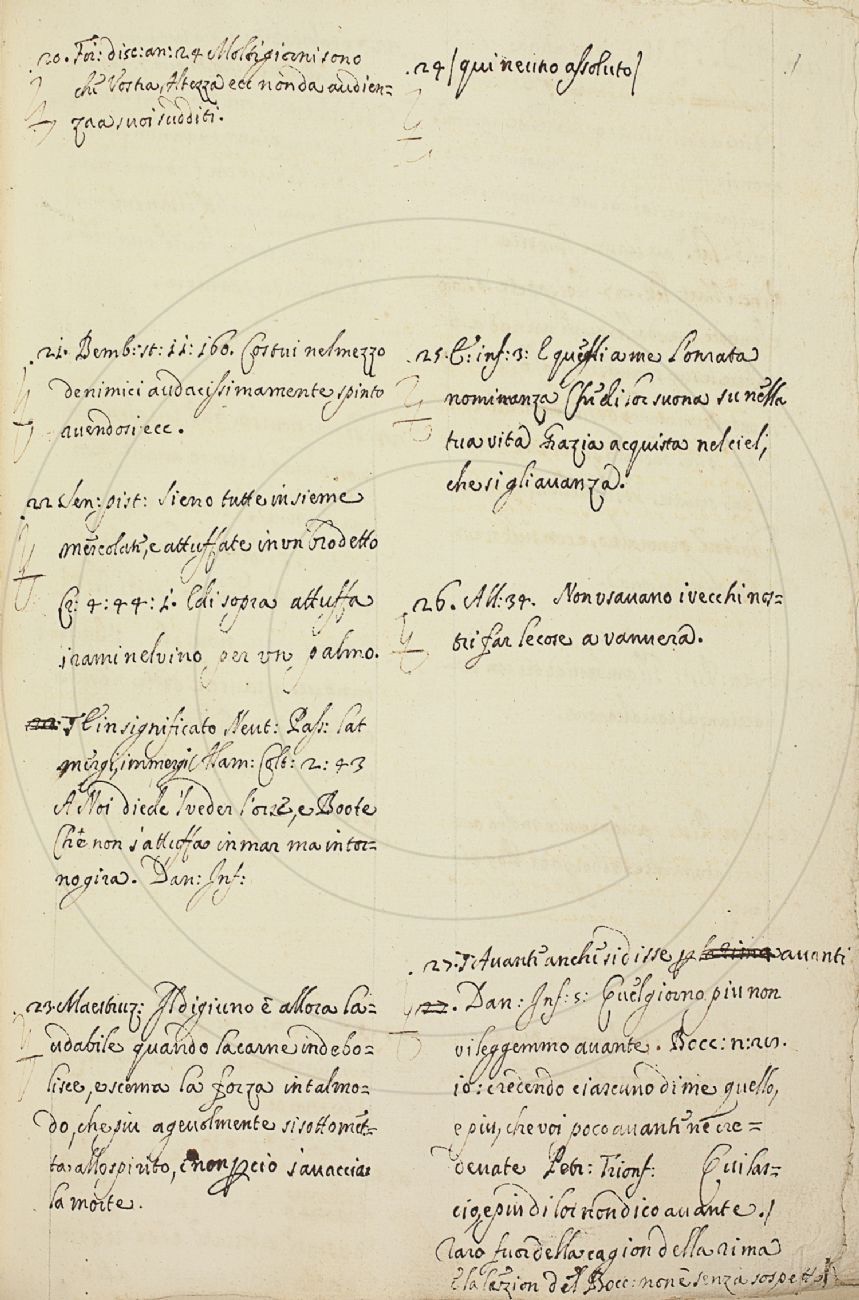 20. Fir: disc: an: 24 Molti giorni sono
che Vostra Altezza ecc non da audien=
za a suoi sudditi.
21. Bemb: st: 11: 160. Costui nel mezzo
de nimici audacissimamente spinto
avendosi ecc.
22. Sen: pist: Sieno tutte insieme
mescolate, e attuffate in un brodetto
Cr: 4: 44: 1. E di sopra attuffa
i rami nel vino per un palmo.
E in significato Neut: Pass: lat
mergi, immergi Alam: Colt: 2: 43
A Noi diede il veder l'orse, e Boote
Che non s'attuffa in mar ma intor=
no gira. Dan: Inf:
23. Maestruz: Il digiuno è allora la=
udabile quando la carne indebo=
lisce, e scema la forza in tal mo=
do, che piu agevolmente si sottomet=
ta allo spirito, e non p cio s'avaccia
la morte.
24 / qui necutro assoluto /
25. E: inf: 3: E quelli a me L'onrata
nominanza Che di lor suona su nella
tua vita Grazia acquista nel ciel,
che si gli avanza.
26. All: 34. Non usavano i vecchi nos=
tri far le cose a vanvera.
27. Avanti anche si disse p la rima avanti
Dan: Inf: 5: Quel giorno piu non
vi leggemmo avante. Bocc: n:
io: credendo ciascuno di me quello,
e piu, che voi poco avanti ne cre=
devate Petr: Trionf: Qui las=
cio, e piu di lor non dico avante. /
raro fuor della cagion della rima
e la lezion del Bocc: non è senza sospetto